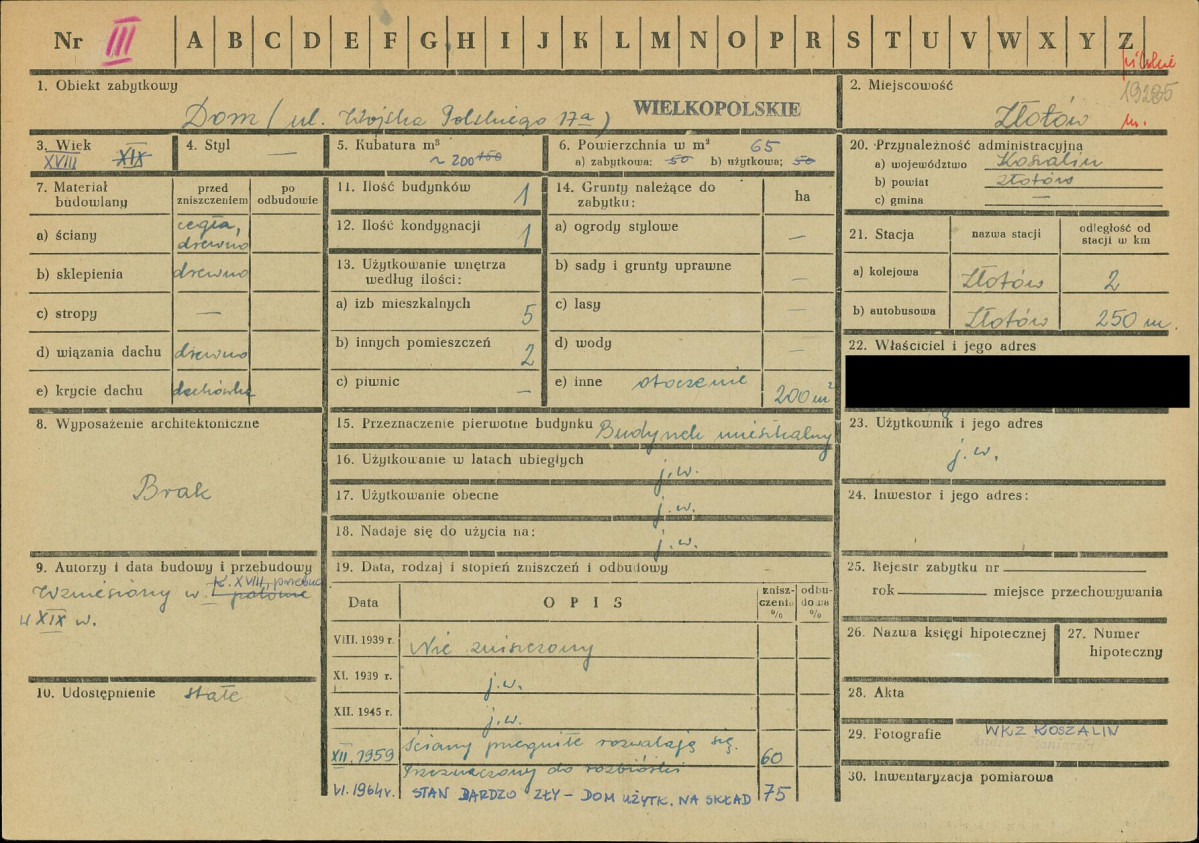 Nr III A B C D E F G H I J K L M N O P R S T U V W X Y Z
1. Obiekt zabytkowy
Dom (ul. Wojska Polskiego 17a) WIELKOPOLSKIE
2. Miejscowość
Złotów m.
3. Wiek
XVIII XIX
4. Styl —
5. Kubatura m³
~ 200 150
6. Powierzchnia w m² 65
a) zabytkowa: 50 b) użytkowa: 50
20. Przynależność administracyjna
a) województwo Koszalin
b) powiat Złotów
c) gmina —
7. Materiał budowlany
przed zniszczeniem
po odbudowie
a) ściany cegła, drewno
b) sklepienia drewno
c) stropy —
d) wiązania dachu drewno
e) krycie dachu dachówka
11. Ilość budynków 1
12. Ilość kondygnacji 1
13. Użytkowanie wnętrza
według ilości:
a) izb mieszkalnych 5
b) innych pomieszczeń 2
c) piwnic —
14. Grunty należące do
zabytku:
ha
a) ogrody stylowe —
b) sady i grunty uprawne —
c) lasy —
d) wody —
e) inne otoczenie 200 m²
21. Stacja
nazwa stacji
odległość od
stacji w km
a) kolejowa Złotów 2
b) autobusowa Złotów 250 m.
22. Właściciel i jego adres
8. Wyposażenie architektoniczne
Brak
15. Przeznaczenie pierwotne budynku Budynek mieszkalny
16. Użytkowanie w latach ubiegłych j.w.
17. Użytkowanie obecne j.w.
18. Nadaje się do użycia na: j.w.
23. Użytkownik i jego adres
j.w.
24. Inwestor i jego adres:
9. Autorzy i data budowy i przebudowy
Wzniesiony w I połowie
K. XVIII, przebud
w XIX w.
10. Udostępnienie stałe
19. Data, rodzaj i stopień zniszczeń i odbudowy
Data
OPIS
znisz-
czeniu
%
odbu-
dowa
%
VIII. 1939 r. Nie zniszczony
XI. 1939 r. j.w.
XII. 1945 r. j.w.
XII. 1959 Ściany pruegnite rozwalają się. 60
Przeznaczony do rozbiórki
VI. 1964 r. STAN BARDZO ZŁY – DOM UŻYTK. NA SKŁAD 75
25. Rejestr zabytku nr
rok miejsce przechowywania
26. Nazwa księgi hipotecznej
27. Numer
hipoteczny
28. Akta
29. Fotografie WKZ KOSZALIN
30. Inwentaryzacja pomiarowa